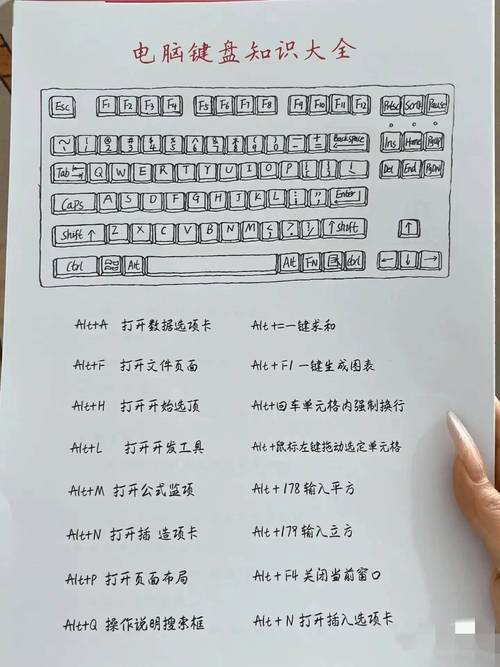 电脑键盘知识大全
Esc F1 F2 F3 F4 F5 F6 F7 F8 F9 F10 F11 F12 Prtsc Scroll Pause
~ ! @ 2 # 3 $ 4 % 5 ^ 6 & 7 * 8 ( 9 ) 0 - + = Backspace Ins Home PgUp
Tab Q W E R T Y U I O P { [ } ] Del End PgDn
Caps A S D F G H J K L : ; " ' Enter
Shift ↑ Z X C V B N M < > ? / ↑ Shift ↑
Ctrl Alt Alt FN Ctrl ← ↓ →
Alt+A 打开数据选项卡 Alt+=一键求和
Alt+F 打开文件页面 Alt+F1一键生成图表
Alt+H 打开开始选顶 Alt+回车单元格内强制换行
Alt+L 打开开发工具 Alt+鼠标左键拖动选定单元格
Alt+M 打开公式监项 Alt+178输入平方
Alt+N 打开插 造项卡 Alt+179输入立方
Alt+P 打开页面布局 Alt+F4 关闭当前窗口
Alt+Q 操作说明搜索框 Alt+N打开插入选项卡